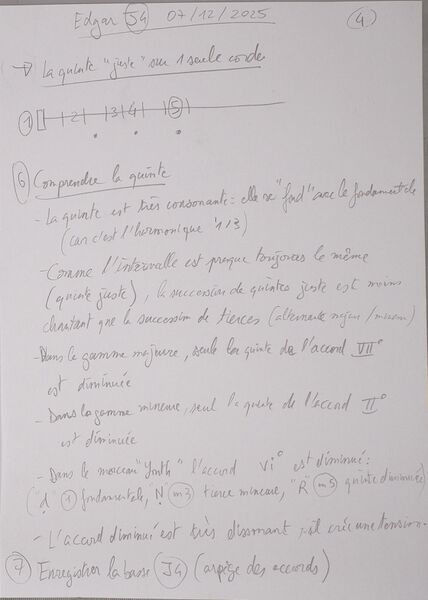 Edgar J4 07/12/2025 4
→ La quinte "juste" sur 1 seule corde
1 2 3 4 5
6 Comprendre la quinte
- La quinte est très consonante : elle se "fond" avec la fondamentale
(car c'est l'harmonique 1/3)
- Comme l'intervalle est presque toujours le même
(quinte juste), la succession de quintes juste est moins
chantant que la succession de tierces (alternante majeur / mineur)
- Dans la gamme majeure, seule la quinte de l'accord VII°
est diminuée
- Dans la gamme mineure, seul la quinte de l'accord II°
est diminuée
- Dans le morceau "Youth" l'accord VI° est diminué :
("d" 1 fondamentale, "N" m3 tierce mineure, "R" m5 quinte diminuée)
- L'accord diminué est très dissonant, il crée une tension.
7 Enregistrer la basse J4 (arpège des accords)